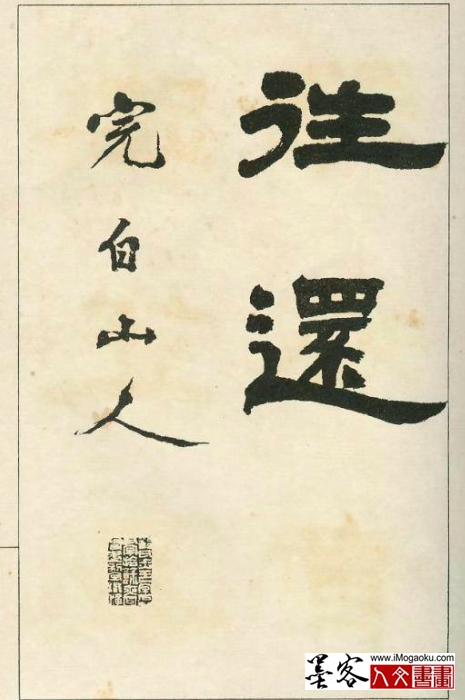 往還
完白山人
墨客
www.iMogaoku.com
人文書畫